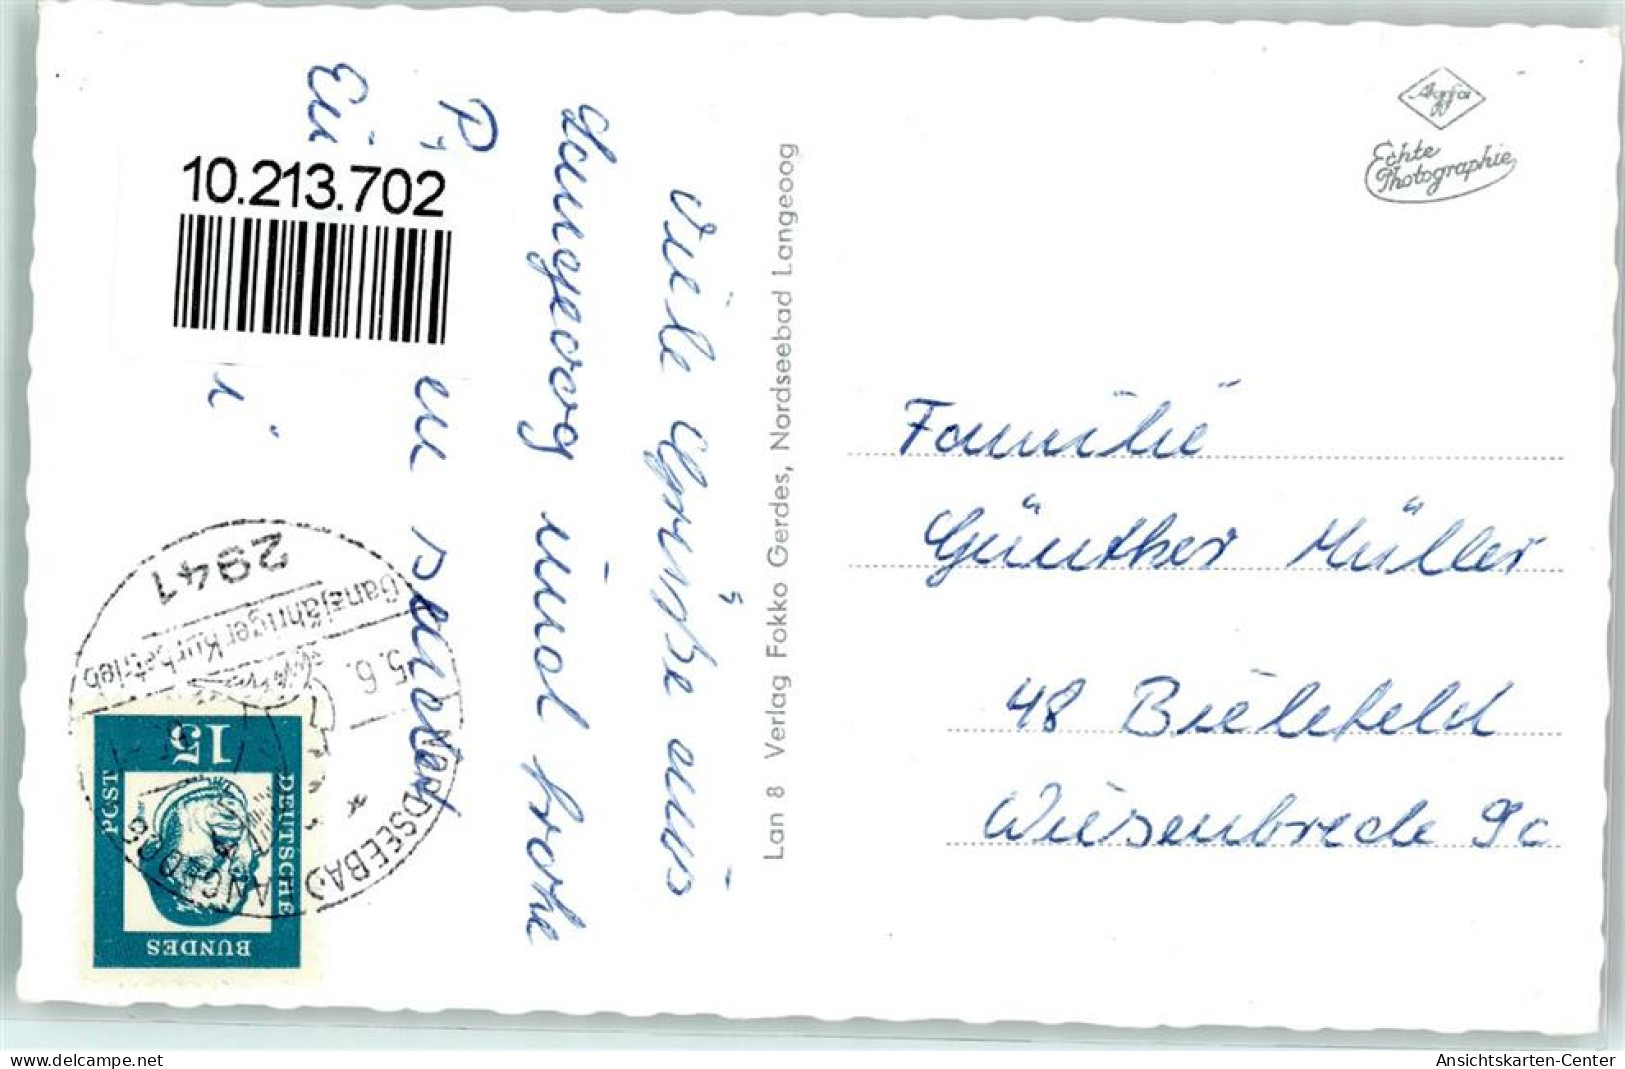 Viele Grüße aus
Langeoog und frohe
en sendet
Ei
10.213.702
Lan 8 Verlag Fokko Gerdes, Nordseebad Langeoog
Agfa
Echte
Photographie
Familie
Günther Müller
48 Bielefeld
Wiesenbrede 9c
2941
Ganzjähriger Kurbetrieb
5.6.
NORDSEEBAD LANGEOOG
15
DEUTSCHE
BUNDES
POST
delcampe.net
Ansichtskarten-Center